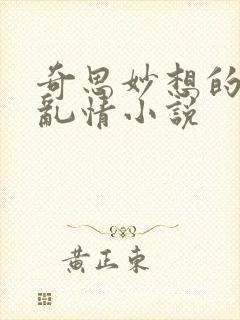 奇思妙想的
亂情小説
黃正東